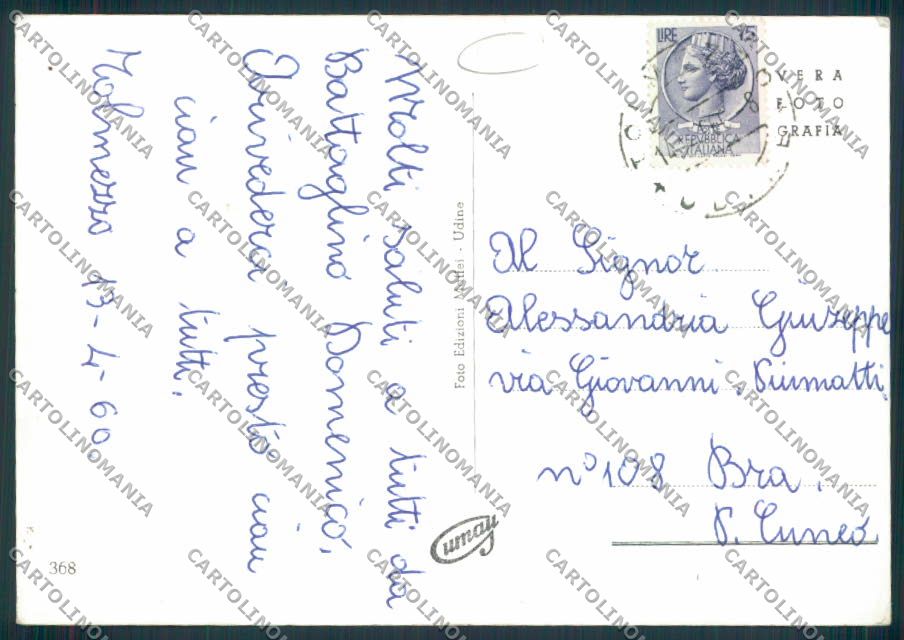 Molti saluti a tutti da
Battaglino Domenico.
Arivederci presto ciau
ciau a tutti.
Tolmezzo 13-4-60.
Foto Edizioni Maffei - Udine
LIRE
REPUBBLICA
ITALIANA
VERA
FOTO
GRAFIA
Al Signor
Alessandria Giuseppe
via Giovanni Piumatti
n° 108 Bra.
P. Cuneo
368
CARTOLINOMANIA